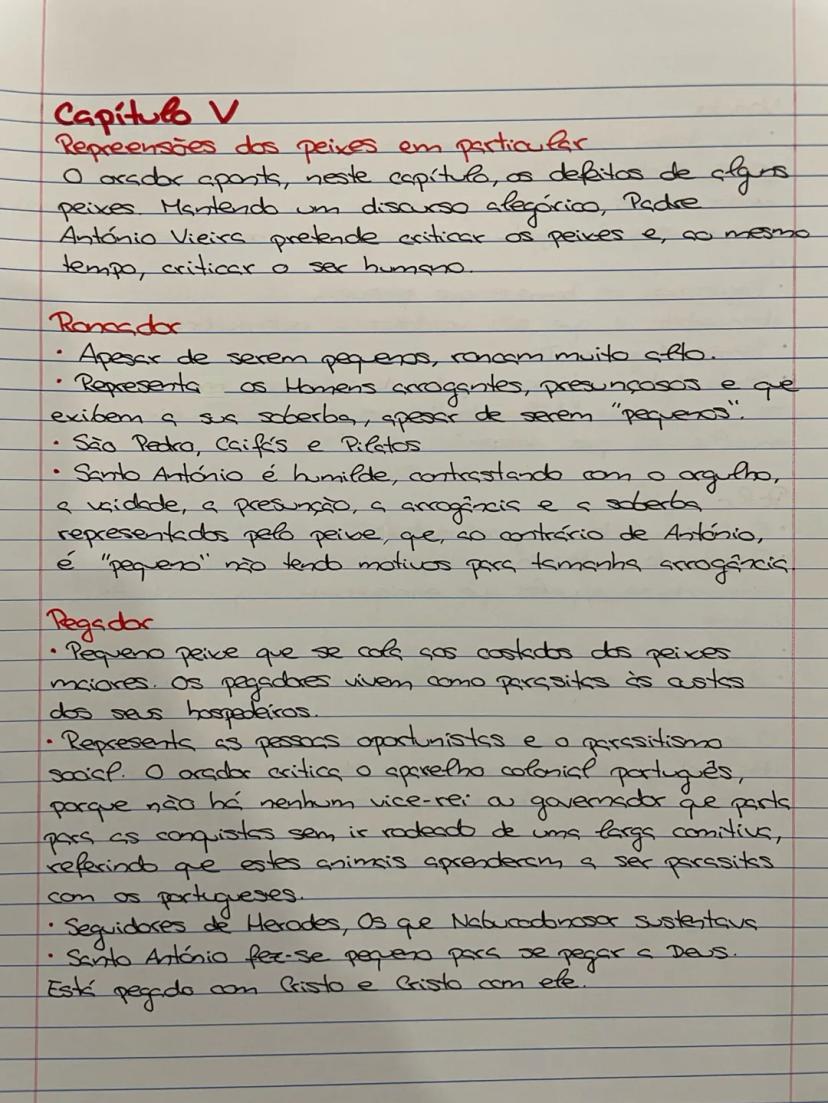 Capítulo V
Repreensões dos peixes em particular
O orador aponta, neste capítulo, os defeitos de alguns
peixes. Mantendo um discurso alegórico, Padre
António Vieira pretende criticar os peixes e, ao mesmo
tempo, criticar o ser humano.
Roncador
· Apesar de serem pequenos, roncam muito alto.
· Representa os Homens arrogantes, presunçosos e que
exibem a sua soberba, apesar de serem "pequenos".
· São Pedro, Caifás e Pilatos
· Santo António é humilde, contrastando com o orgulho,
a vaidade, a presunção, a arrogância e a soberba
representados pelo peixe, que, ao contrário de António,
é "pequeno" não tendo motivos para tamanha arrogância.
Pegador
· Pequeno peixe que se cola aos costados dos peixes
maiores. Os pegadores vivem como parasitas às custas
dos seus hospedeiros.
· Representa as pessoas oportunistas e o parasitismo
social. O orador critica o aparelho colonial português,
porque não há nenhum vice-rei ou governador que parta
para as conquistas sem ir rodeado de uma larga comitiva,
referindo que estes animais aprenderam a ser parasitas
com os portugueses.
· Seguidores de Herodes, Os que Nabucodonosor sustentava
· Santo António fez-se pequeno para se pegar a Deus.
Está pegado com Cristo e Cristo com ele.